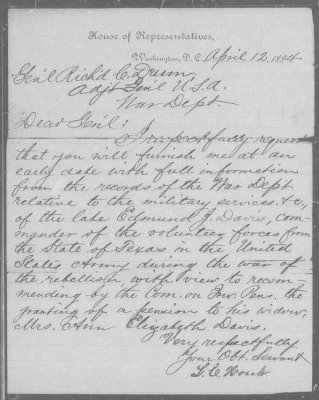 House of Representatives,
Washington, D.C. April 12, 1884
Gen'l Rich'd C. Drum,
Adj't Gen'l U.S.A.
War Dept.
Dear Gen'l:
I respectfully request
that you will furnish me at an
early date with full information
from the records of the War Dept
relative to the military services &c.,
of the late Edmund J. Davis, com-
mander of the volunteer forces from
the State of Texas in the United
States Army during the war of
the rebellion, with view to recom-
mending by the Com. on Inv. Pens. the
granting of a pension to his widow,
Mrs. Ann Elizabeth Davis.
Very respectfully
Your Obt. Servant
L. C. Houk